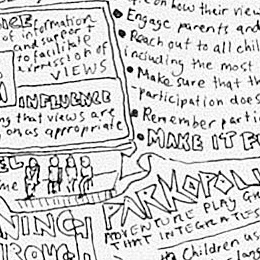 ICE information
of and support
to facilitate
expression of
VIEWS
INFLUENCE
ng that views are
on as appropriate
on how their view
• Engage parents and
• Reach out to all chil
including the most
• Make sure that th
participation does
• Remember partic
• MAKE IT F
EL
me
PARKOPOL
ADVENTURE PLAY G
THAT INTEGRATES
NING
ROUG
Children us